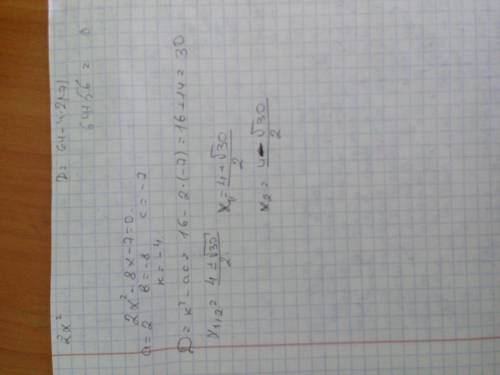 2x²
D = 64 - 4·2(-7)
64+56 =
2x² - 8x - 7 = 0
a = 2 в = -8 c = -7
к = -4
D = к² - ac = 16 - 2·(-7) = 16 + 14 = 30
x₁,₂ = (4 ± √30)/2
x₁ = (4 + √30)/2
x₂ = (4 - √30)/2